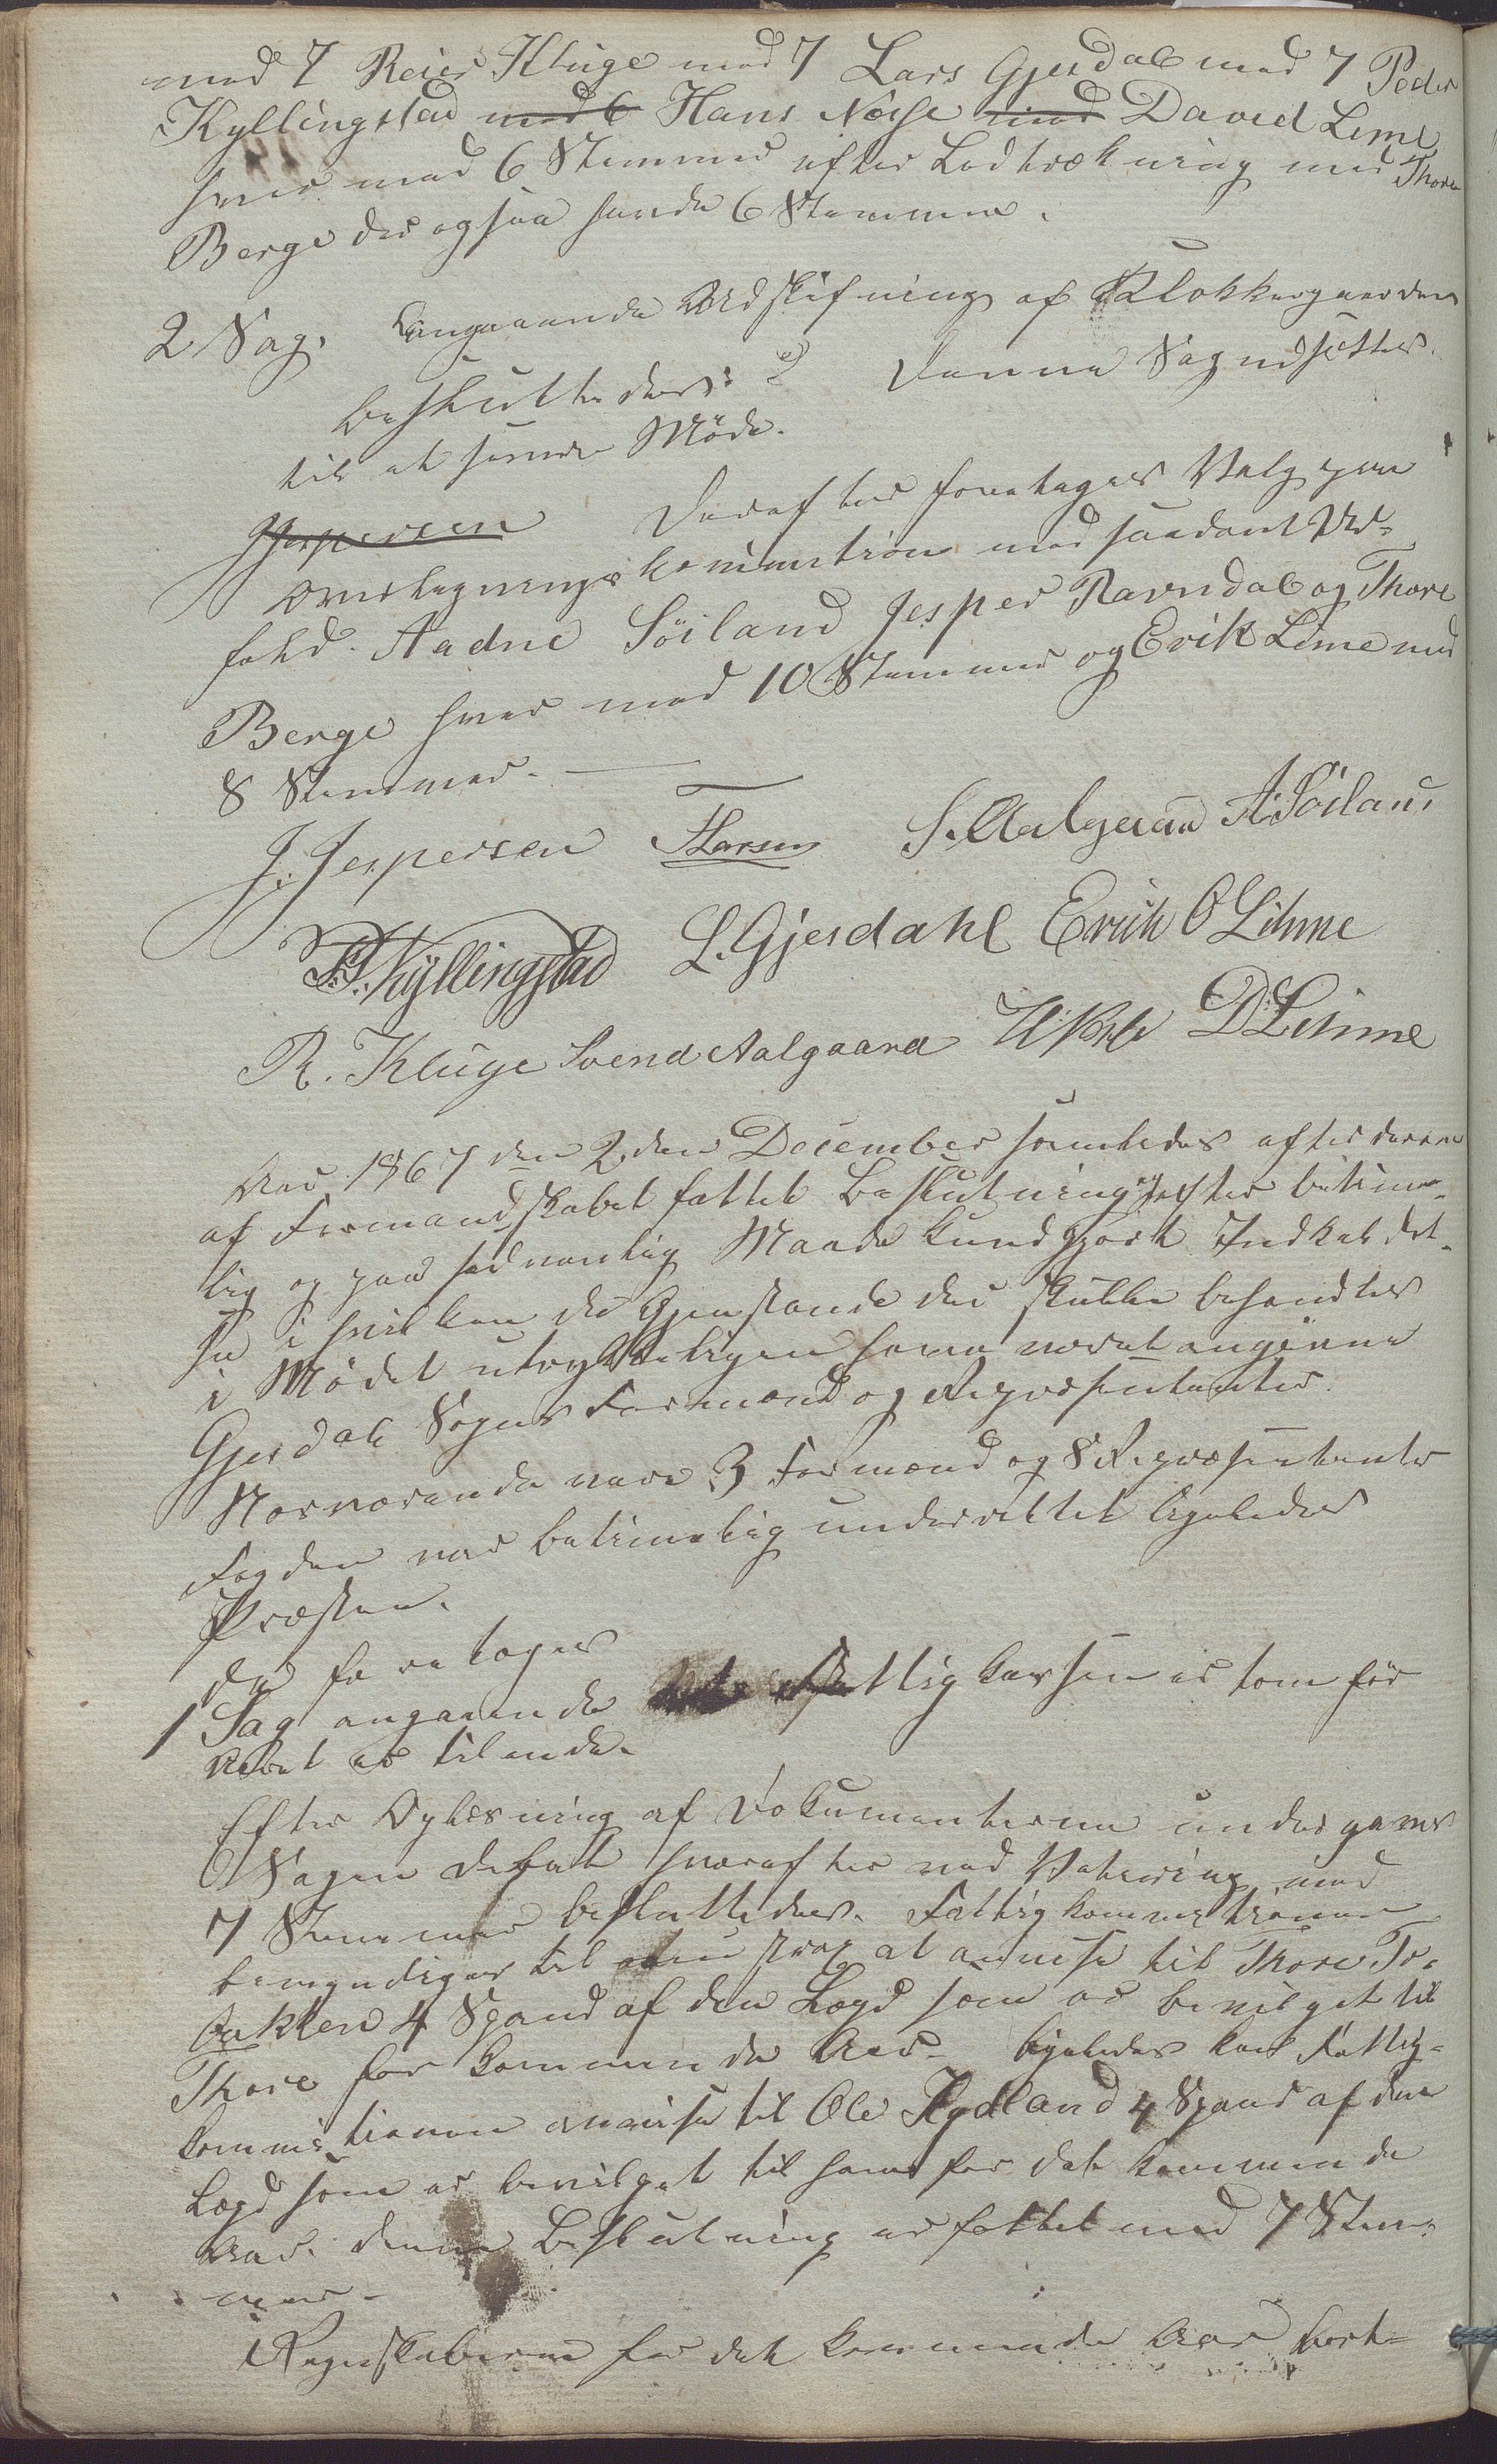 med 7 Reier Kluge med 7 Lars Gjesdal med 7 Peder
Kyllingstad med 6 Hans Næsse med David Lime
hver med 6 Stemmer efter Lodtrækning med Thore
Berge der ogsaa havde 6 Stemmer.
2 Sag. Angaaende Udskifning af Klokkergaarden
besluttedes: Denne Sag udsættes
til et senere Møde.
JJespersen Derefter foretages Valg paa
Overtagningskommission med saadant Ud-
fald. Aadne Söiland Jesper Ravndal og Thore
Berge hver med 10 Stemmer og Erik Lime med
8 Stemmer.
J. Jespersen TLarsen S. Aalgaard A. Söiland
P. Kyllingstad L. Gjesdahl Erick O Lihme
R. Kluge Svend Aalgaard H. Næsse D. Lihme
Aar 1867 den 2den December samledes efter derom
af Formandskabet fattet Beslutning efter betime-
lig og paa sædvanlig Maade kundgjort Indkaldel-
se i hvilken de Gjenstande der skulle behandles
i Mødet udtrykkeligen have været angivne
Gjesdals Sogns Formænd og Repræsentanter.
Nærværende vare 3 Formænd og 8 Repræsentanter
Fogden var betimelig underrettet ligeledes
Præsten.
Der foretages
1 Sag angaaende Fattigkassen er tom før
Aaret er tilende.
Efter Oplæsning af Dokumenterne undergaves
Sagen Debat hvorefter ved Votering med
7 Stemmer besluttedes. Fattigkommissionen
bemyndiges til strax at anvise til Thore Tv.
Bakken 4 Spand af den Lægd som er bevilget til
Thore for kommende Aar. ligeledes kan Fattig-
kommissionen anvise til Ole Kydland 4 Spand af den
Lægd som er bevilget til ham for det kommende
Aar. denne Beslutning er fattet med 7 Stem-
mer.
Regnskaberne for det kommende Aar bort-